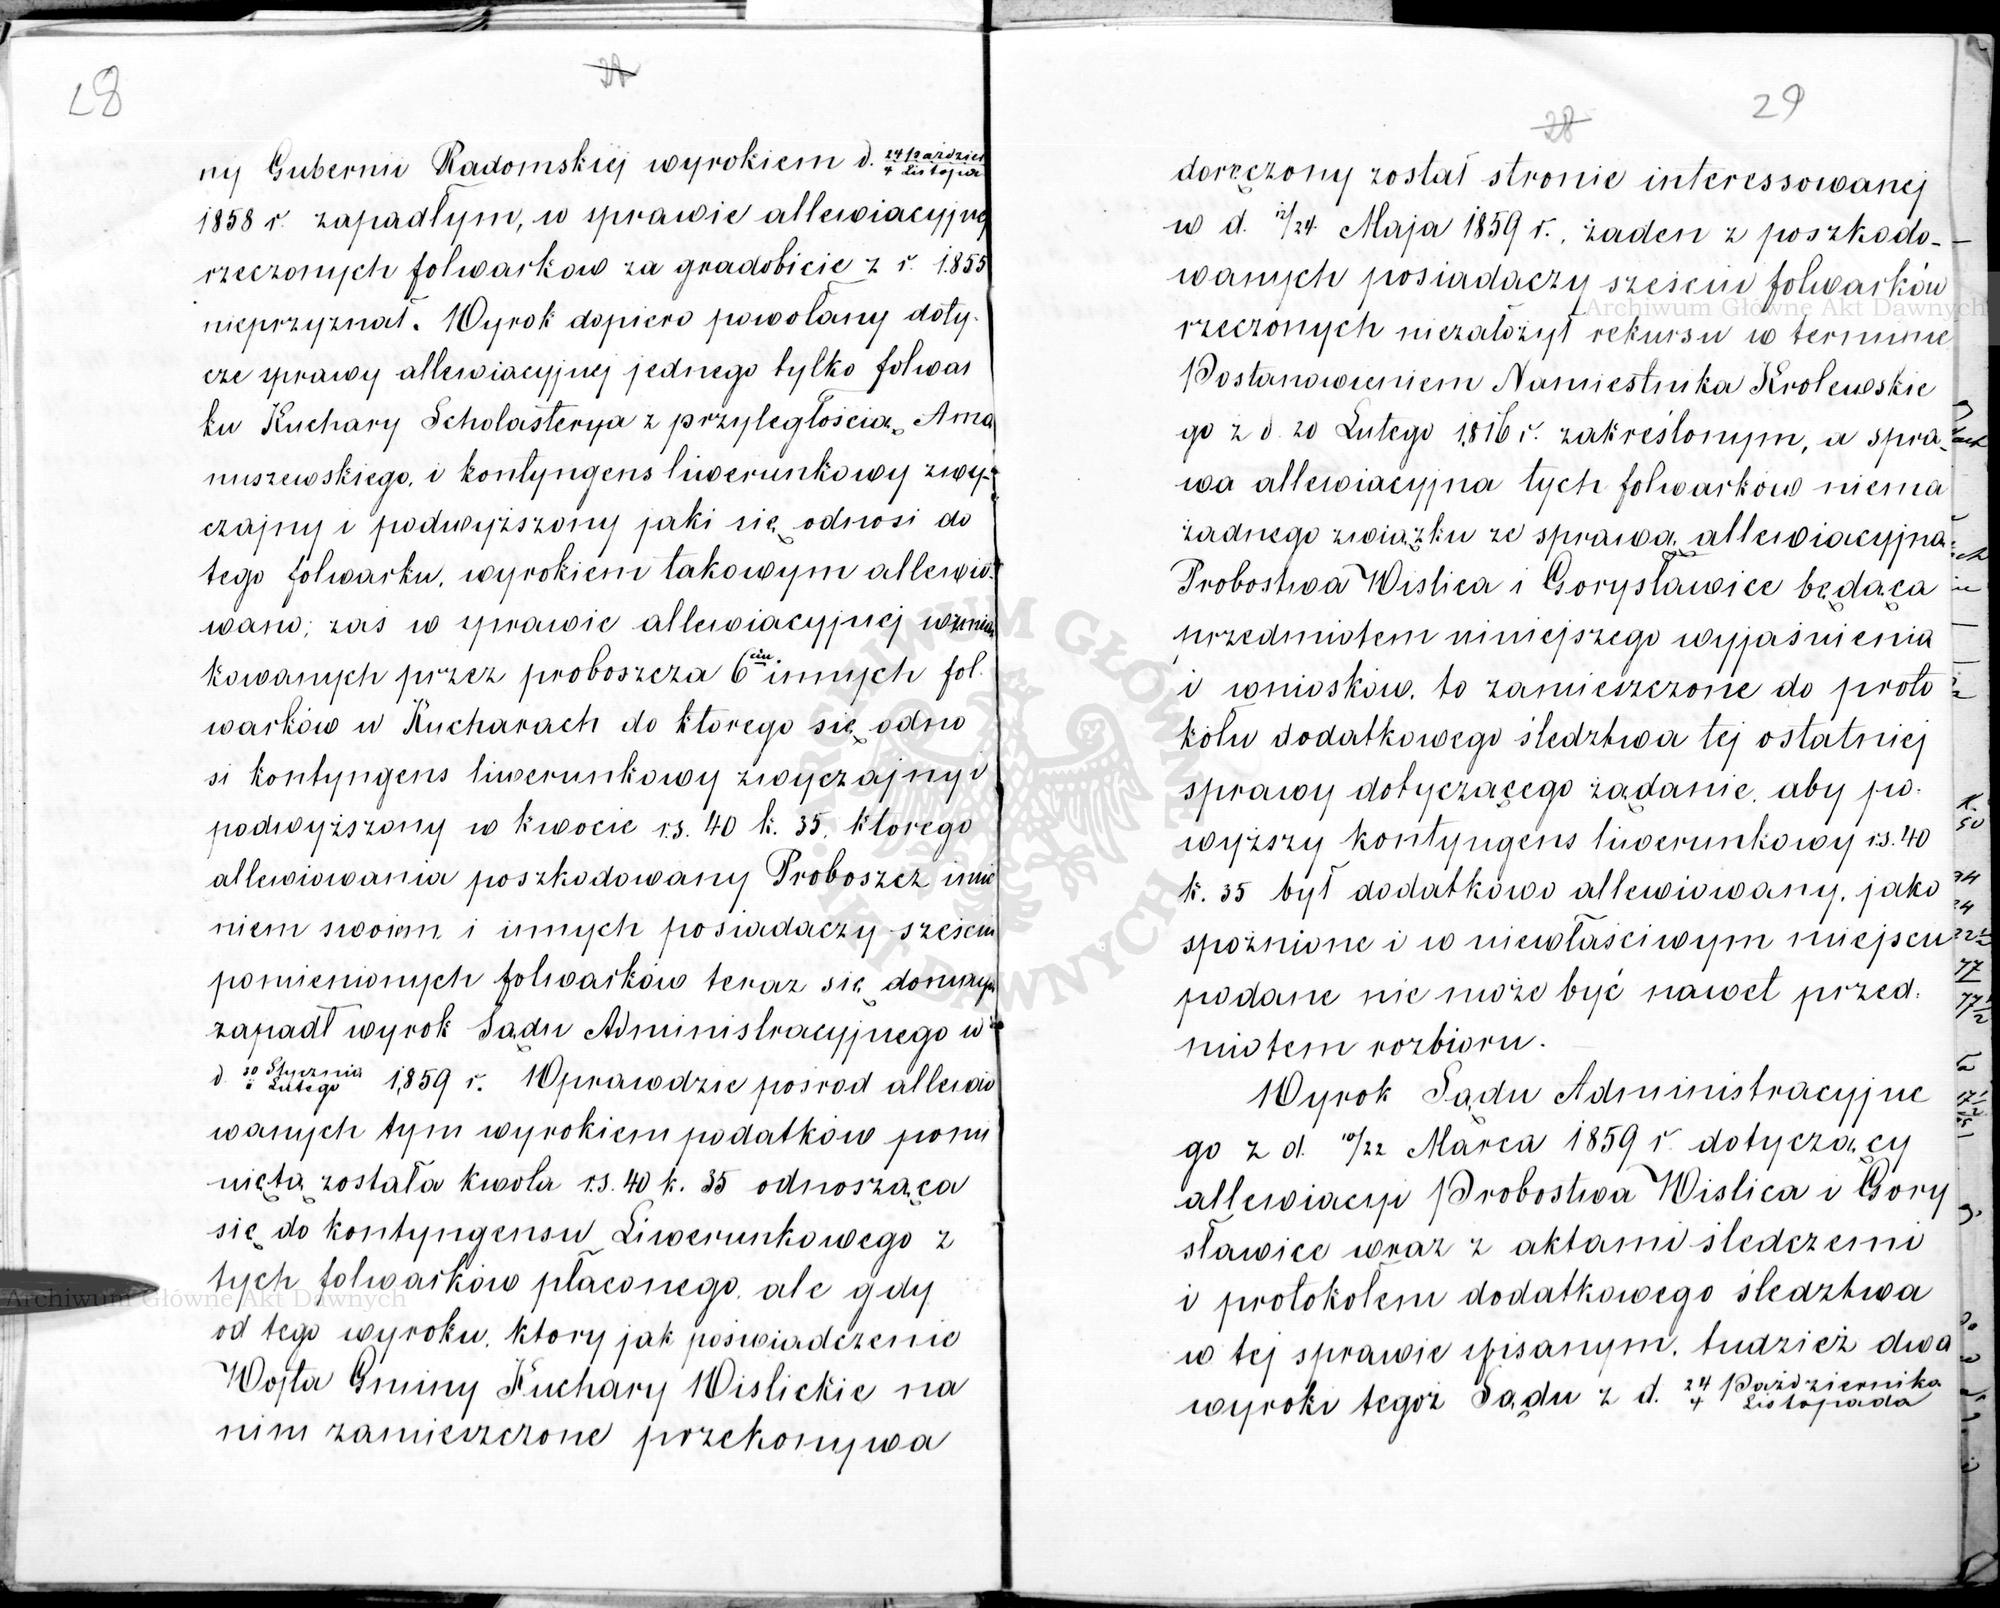 28
ny Gubernii Radomskiej wyrokiem d. 24 Paździer / 4 Listopa
1858 r. zapadłym, w sprawie allewiacyjnej
rzeczonych folwarkow za gradobicie z r. 1855
nieprzyznał. Wyrok dopiero powołany doty-
cze sprawy allewiacyjnej jednego tylko folwar
ku Kuchary Scholasterya z przyległością Ama
nuszewskiego, i kontyngens liwerunkowy zwy-
czajny i podwyższony jaki się odnosi do
tego folwarku, wyrokiem takowym allewio-
wano; zaś w sprawie allewiacyjnej wzmian
kowanych przez proboszcza 6ciu innych fol-
warków w Kucharach do ktorego się odno
si kontyngens liwerunkowy zwyczajny i
podwyższony w kwocie r.s. 40 k. 35, ktorego
allewiowania poszkodowany Proboszcz imie
niem swoiem i innych posiadaczy sześciu
pomienionych folwarków teraz się domaga
zapadł wyrok Sądu Administracyjnego w
d. 20 Stycznia / Lutego 1859 r. Wprawdzie pośrod allewio
wanych tym wyrokiem podatków pomi
niętą została kwota r.s. 40 k. 35 odnosząca
się do kontyngensu Liwerunkowego z
tych folwarków płaconego, ale gdy
od tego wyroku, ktory jak poświadczenie
Wojta Gminy Kuchary Wislickie na
nim zamieszczone przekonywa
28
29
doręczony został stronie interessowanej
w d. 12/24 Maja 1859 r., żaden z poszkodo-
wanych posiadaczy sześciu folwarków
rzeczonych niezałożył rekursu w terminie
Postanowieniem Namiestnika Krolewskie
go z d. 20 Lutego 1816 r. zakreślonym, a spra-
wa allewiacyjna tych folwarkow niema
żadnego związku ze sprawą allewiacyjną
Probostwa Wislica i Gorysławice będącą
przedmiotem niniejszego wyjaśnienia
i wniosków, to zamieszczone do proto
kołu dodatkowego śledztwa tej ostatniej
sprawy dotyczącego żądanie, aby po-
wyższy kontyngens liwerunkowy r.s. 40
k. 35 był dodatkowo allewiowany, jako
spoźnione i w niewłaściwym miejscu
podane nie może być nawet przed-
miotem rozbioru.
Wyrok Sądu Administracyjne
go z d. 10/22 Marca 1859 r. dotyczący
allewiacyi Probostwa Wislica i Gory
sławice wraz z aktami śledczemi
i protokołem dodatkowego śledztwa
w tej sprawie spisanym, tudzież dwa
wyroki tegoż Sądu z d. 24 Października / 4 Listopada
Archiwum Główne Akt Dawnych
Archiwum Główne Akt Dawnych
ARCHIWUM GŁÓWNE AKT DAWNYCH